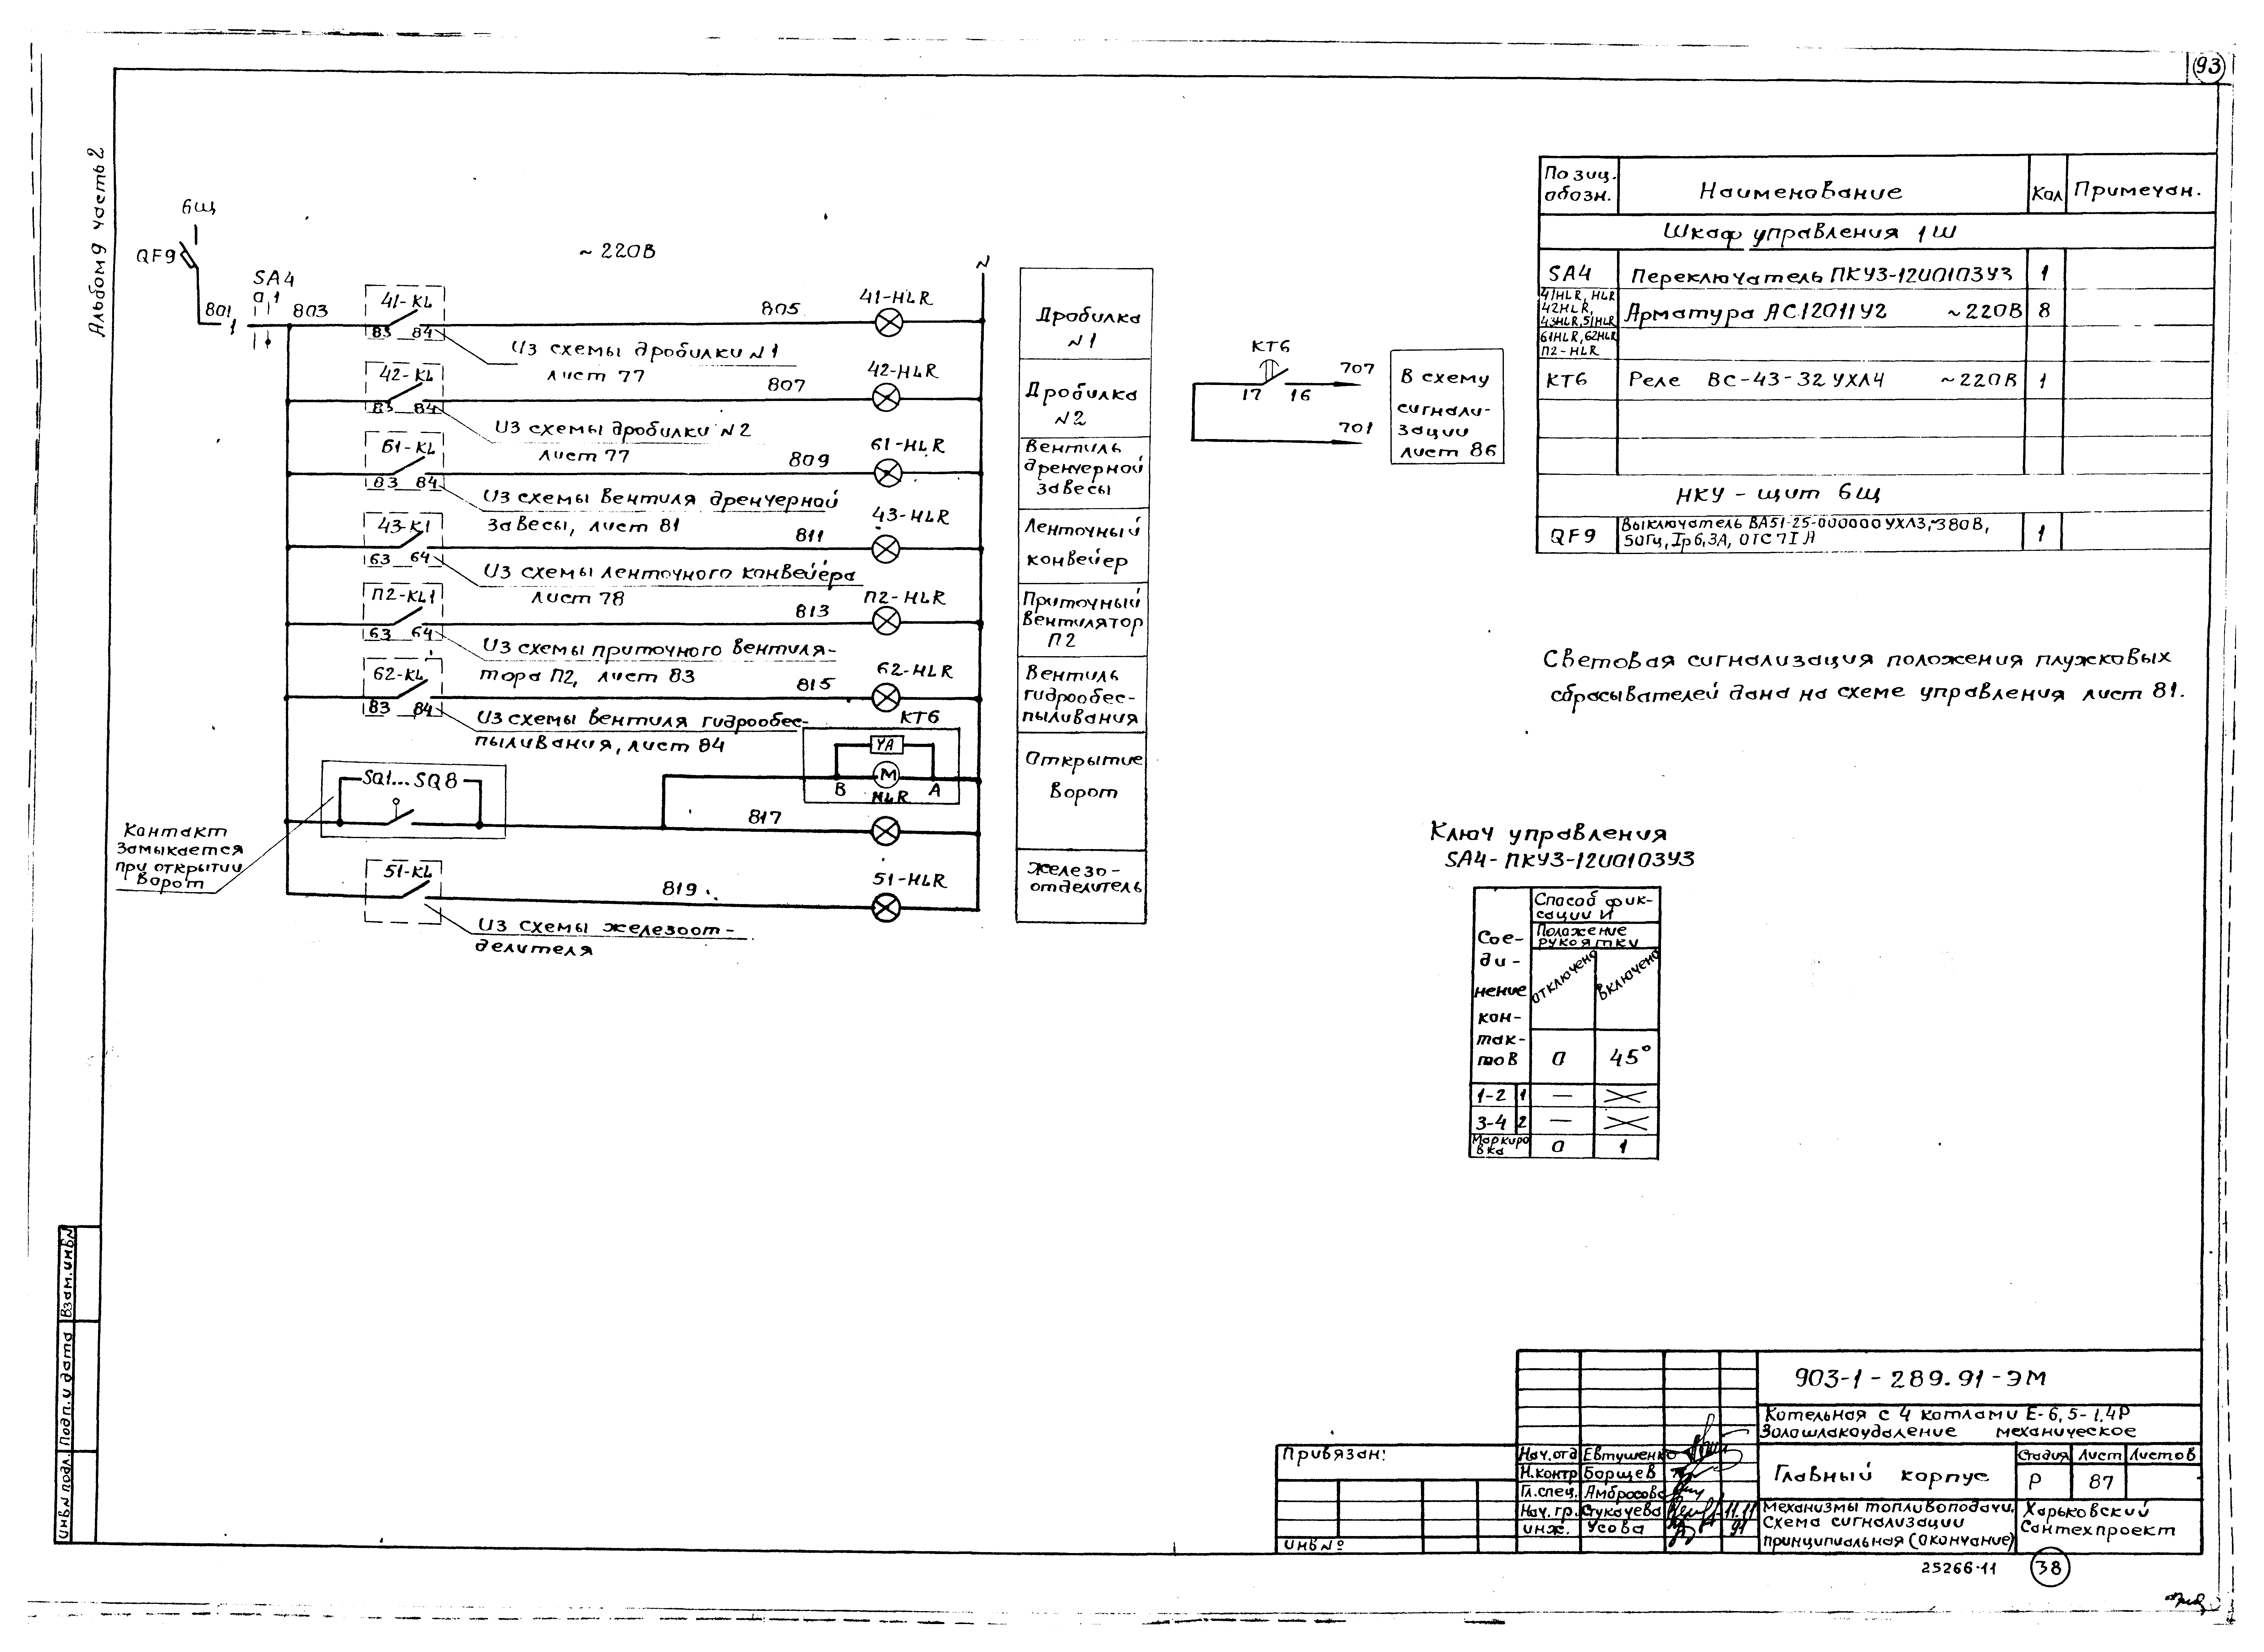 93
Альбом 9 часть 2
6Щ
QF9
SA4
0 1
801
1
803
~220В
N
41-KL
83 84
805
41-HLR
Из схемы дробилки N1
лист 77
42-KL
83 84
807
42-HLR
Из схемы дробилки N2
лист 77
61-KL
83 84
809
61-HLR
Из схемы вентиля дренчерной
завесы, лист 81
43-K1
63 64
811
43-HLR
Из схемы ленточного конвейера
лист 78
П2-KL1
63 64
813
П2-HLR
Из схемы приточного вентиля-
тора П2, лист 83
62-KL
83 84
815
62-HLR
Из схемы вентиля гидрообес-
пыливания, лист 84
KT6
YA
M
B
A
HLR
SQ1...SQ8
817
Контакт
замыкается
при открытии
ворот
51-KL
819
51-HLR
Из схемы железоот-
делителя
Дробилка
N1
Дробилка
N2
Вентиль
дренчерной
завесы
Ленточный
конвейер
Приточный
вентилятор
П2
Вентиль
гидрообес-
пыливания
Открытие
ворот
Железо-
отделитель
KT6
17 16
707
701
В схему
сигнали-
зации
лист 86
Позиц. обозн.
Наименование
Кол
Примечан.
Шкаф управления 1Ш
SA4 Переключатель ПКУ3-12И0103У3 1
41HLR, HLR
42HLR,
43HLR, 51HLR
61HLR, 62HLR
П2-HLR
Арматура АС12011У2 ~220В 8
KT6 Реле ВС-43-32УХЛ4 ~220В 1
НКУ - щит 6Щ
QF9
Выключатель ВА51-25-000000УХЛ3,~380В,
50Гц, Iр6,3А, ОТС 7IН
1
Световая сигнализация положения плужковых
сбрасывателей дана на схеме управления лист 81.
Ключ управления
SA4-ПКУ3-12И0103У3
Сое-
ди-
нение
кон-
так-
тов
Способ фик-
сации И
Положение
рукоятки
отключено
включено
0 45°
1-2 1 — X
3-4 2 — X
Маркиро
вка
0 1
Инв.N подл. Подп. и дата Взам.инв.N
Привязан:
Инв №
Нач.отд Евтушенко
Н.контр Борщев
Гл.спец. Амбросова
Нач. гр. Стукачева 11.11
инж. Усова 91
903-1-289.91-ЭМ
Котельная с 4 котлами Е-6,5-1,4Р
Золошлакоудаление механическое
Главный корпус
Стадия Лист Листов
Р 87
Механизмы топливоподачи.
Схема сигнализации
принципиальная (окончание)
Харьковский
Сантехпроект
25266-11
38